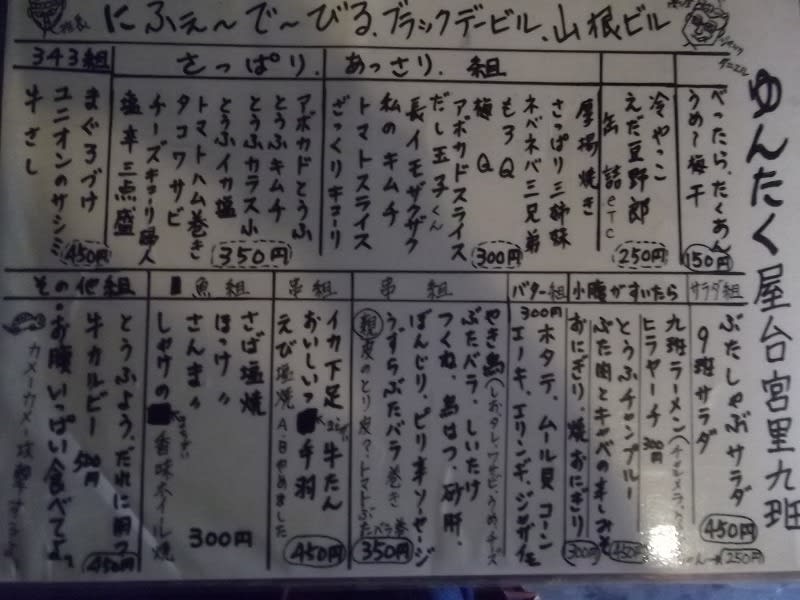 にふぇ〜で〜びる、ブラックデービル、山根ビル
ゆんたく屋台宮里九班
さっぱり、あっさり組
べったら、たくあん
うめ〜梅干
150円
冷やっこ
えだ豆野郎
缶詰etc
250円
厚揚焼き
さっぱり三姉妹
ネバネバ三兄弟
もろQ
梅Q
アボカドスライス
だし玉子くん
長イモザクザク
私のキムチ
トマトスライス
ざっくりキューリ
300円
アボカドとうふ
とうふキムチ
とうふカラス小
とうふイカ塩
トマトハム巻き
タコワサビ
チーズキューリ婦人
塩辛三点盛
350円
343組
まぐろづけ
ユニオンのサシミ
牛さし
450円
サラダ組
ぶたしゃぶサラダ
9班サラダ
450円
250円
小腹がすいたら
九班ラーメン
ヒラヤーチ
300円
とうふチャンプルー
450円
おにぎり、焼おにぎり
300円
バター組
300円
ホタテ、ムール貝、コーン
エノーキ、エリンギ、ジャガイモ
串組
やき鳥(しお、タレ、ワサビ、うめ、チーズ
ぶたバラ、しいたけ
つくね、鳥はつ、砂肝、
ぼんじり、ピリ辛ソーセージ
うずらぶたバラ巻き
親皮のとり皮?、トマトぶたバラ巻
350円
串組
イカ下足、牛たん
おいしいっ手羽
えび塩焼
450円
魚組
さば塩焼
ほっけ〃
さんま〃
しゃけの香味ホイル焼
300円
その他組
とうふよう、だれに用?
牛カルビー
500円
の・お腹いっぱい食べてよ。
450円
カメーカメー攻撃